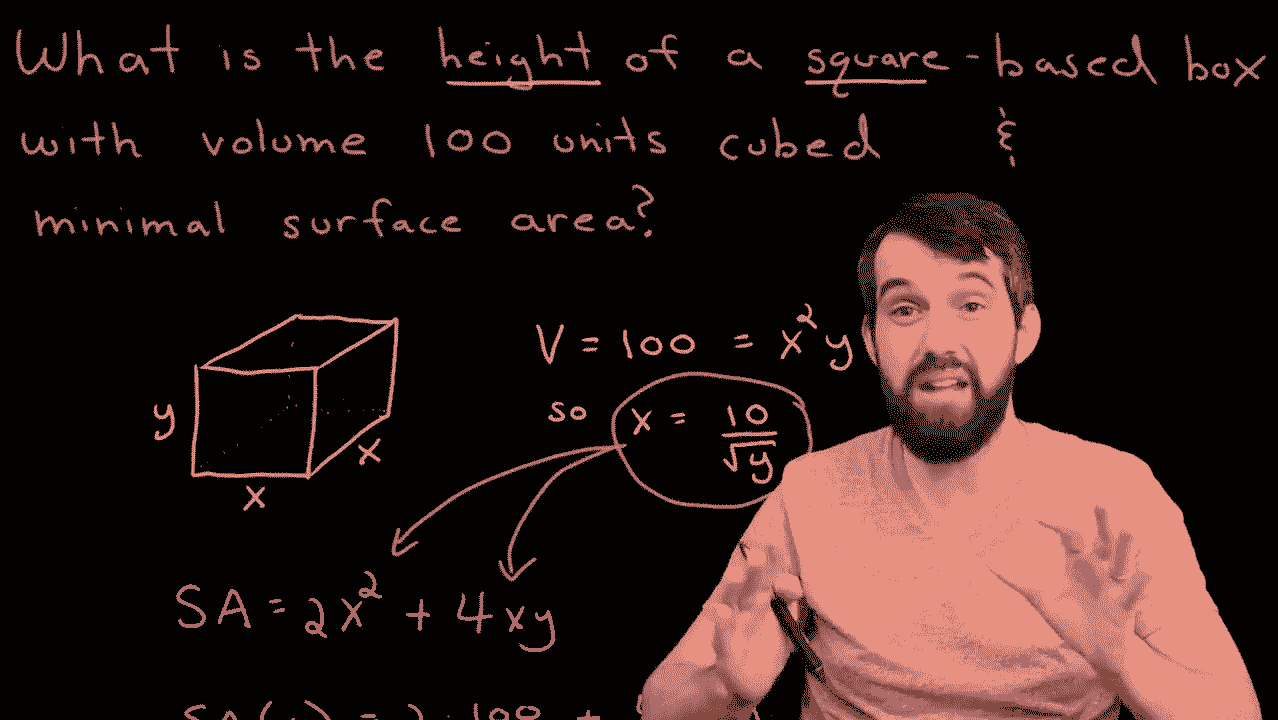 What is the height of a square-based box
with volume 100 units cubed &
minimal surface area?
V = 100 = x²y
so x = 10/√y
y
x
x
SA = 2x² + 4xy
= 2·100 +